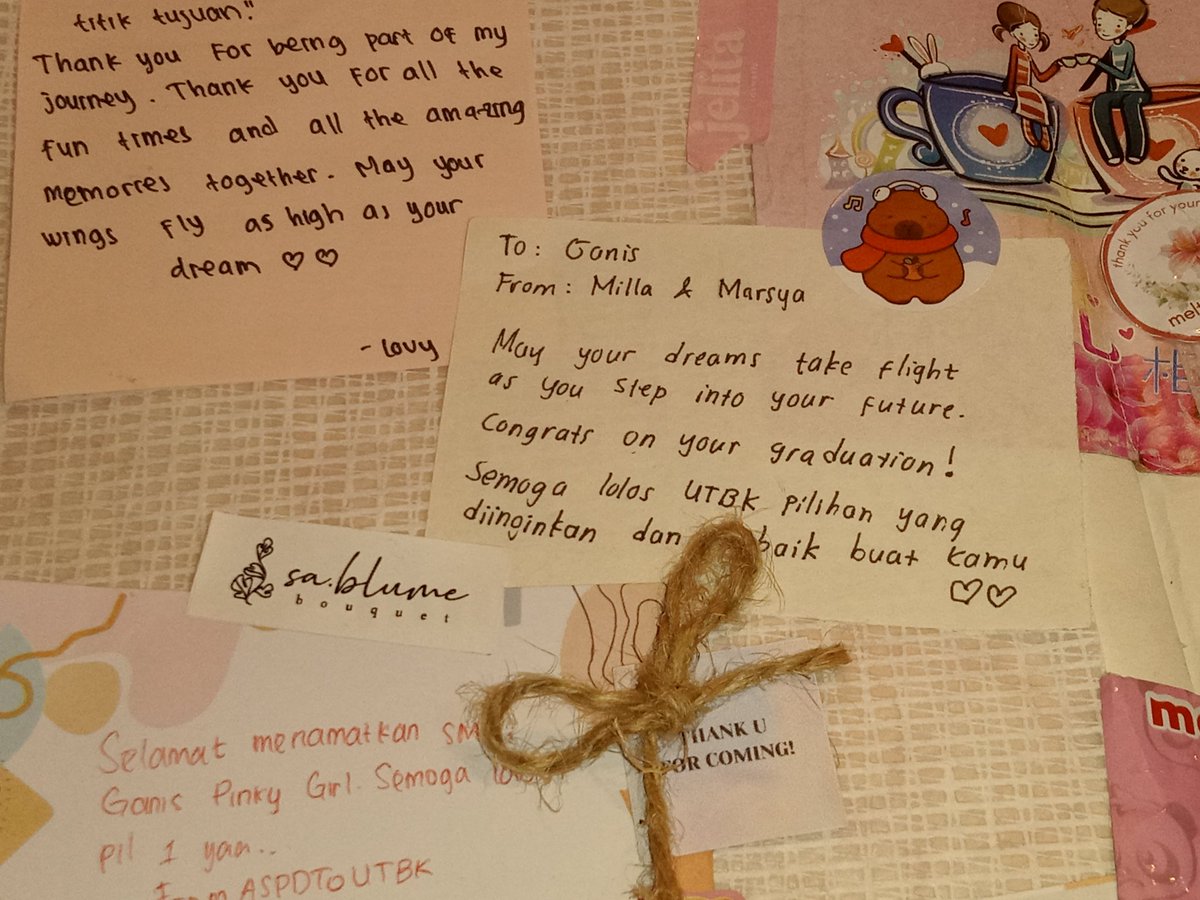 titik tujuan."
Thank you for being part of my
journey. Thank you for all the
fun times and all the amazing
memories together. May your
wings fly as high as your
dream ♡♡
- Lovy
jelita
thank you for your
melt
To: Ganis
From: Milla & Marsya
May your dreams take flight
as you step into your future.
Congrats on your graduation!
Semoga lolos UTBK pilihan yang
diinginkan dan baik buat kamu
♡♡
sa.blume
bouquet
THANK U
FOR COMING!
Selamat menamatkan
Ganis Pinky Girl. Semoga
pil 1 yaa..
From ASPDTOUTBK